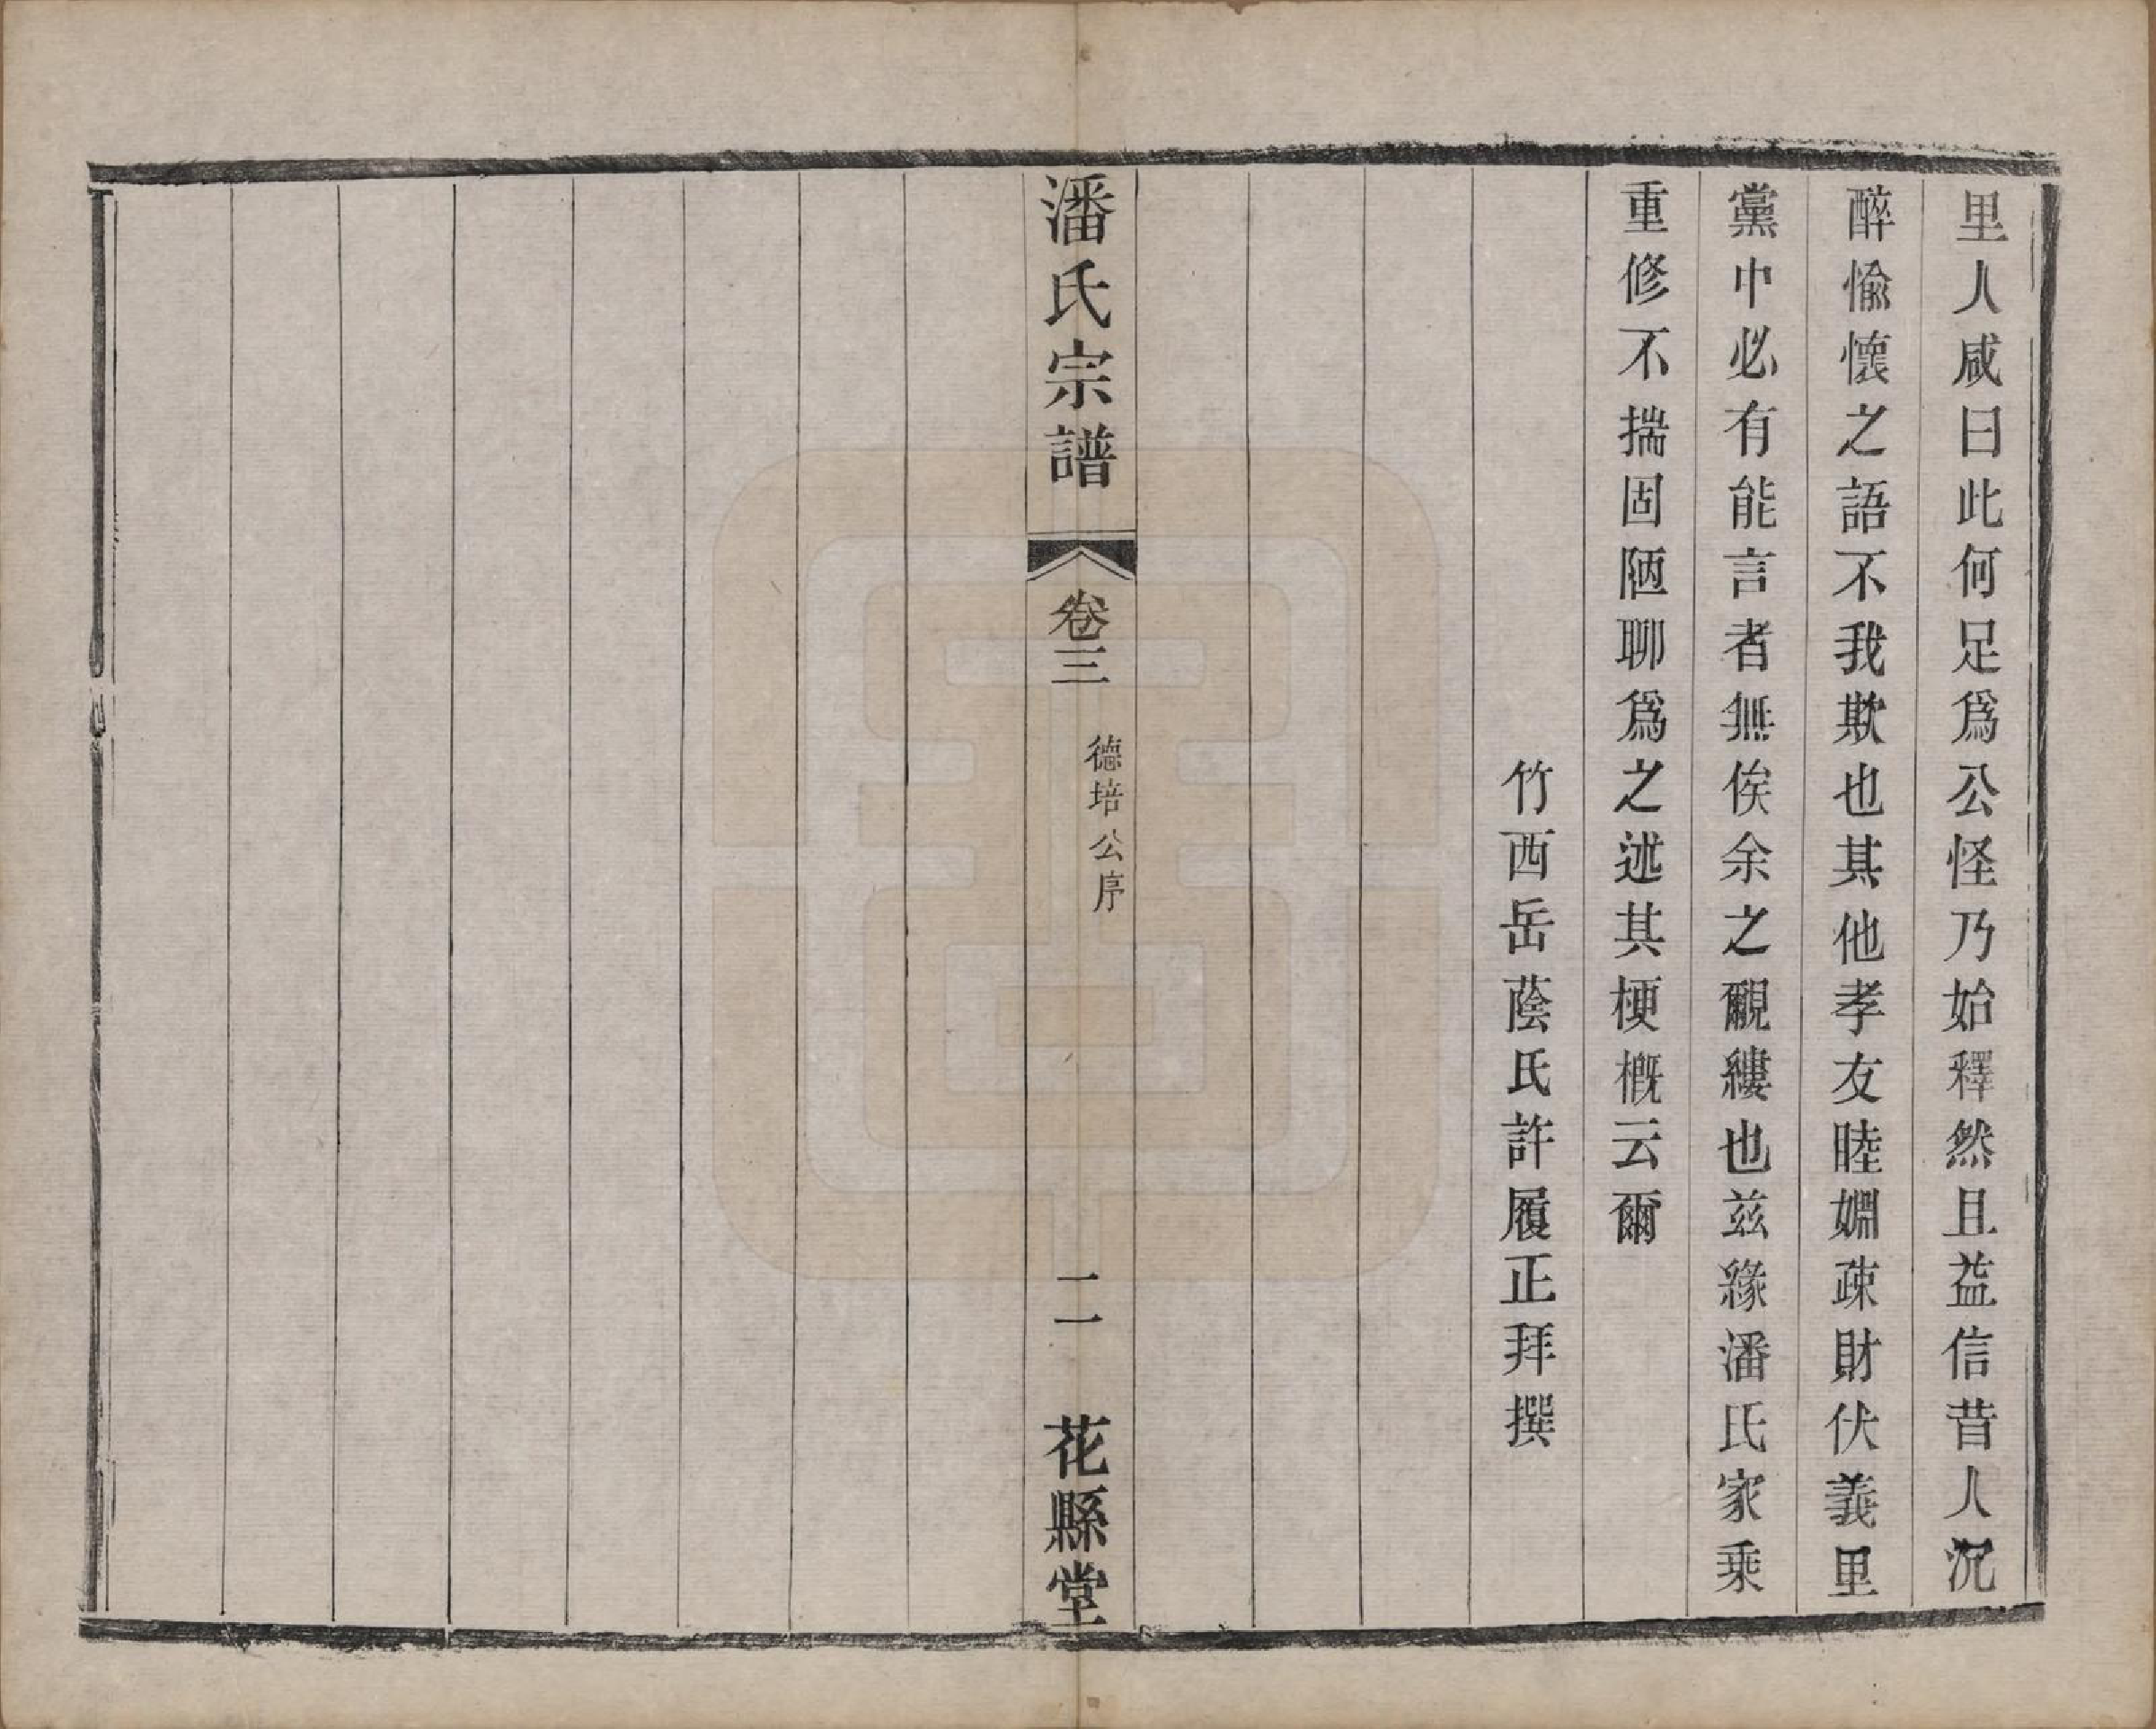 里人咸曰此何足爲公怪乃始釋然且益信昔人沉
醉愉懷之語不我欺也其他孝友睦婣疎財伏義里
黨中必有能言者無俟余之覼縷也茲緣潘氏家乗
重修不揣固陋聊爲之述其梗概云爾
竹西岳蔭氏許履正拜撰
潘氏宗譜
卷三
德培公序
二
花縣堂